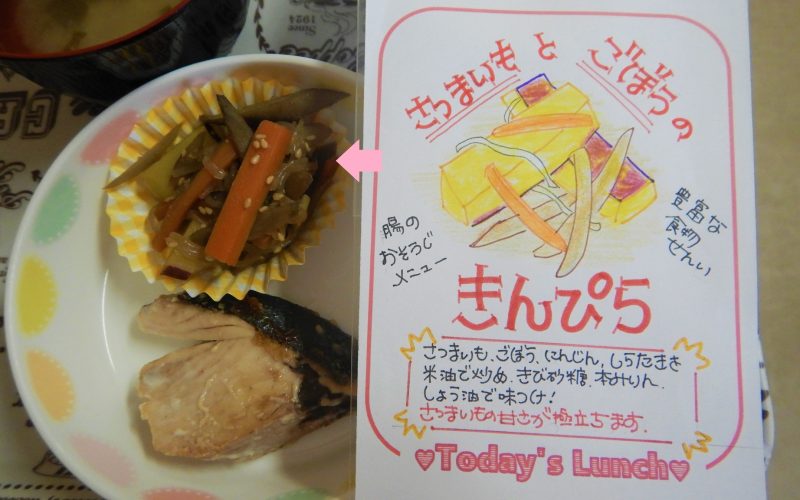 さつまいもとごぼうの
きんぴら
腸の
おそうじ
メニュー
豊富な
食物
せんい
さつまいも、ごぼう、にんじん、しらたきを
米油で炒め、きび砂糖、本みりん、
しょう油で味つけ!
さつまいもの甘さが極立ちます.
♥Today's Lunch♥
Since
1924